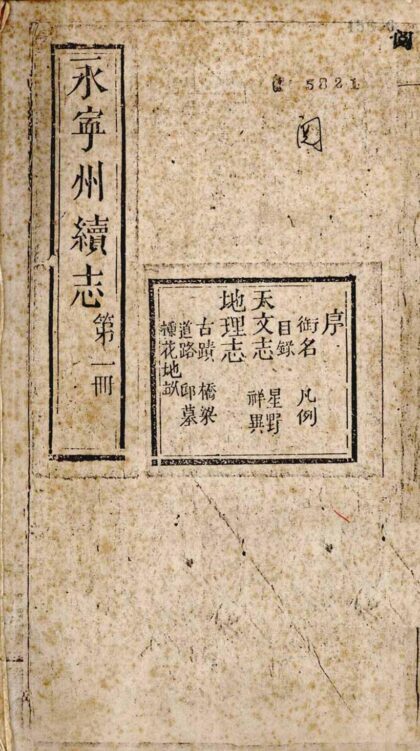 永寧州續志 第一冊
5821
序
銜名 凡例
目錄
天文志 星野
祥異
地理志
古蹟 橋梁
道路 邱墓
種花地畝